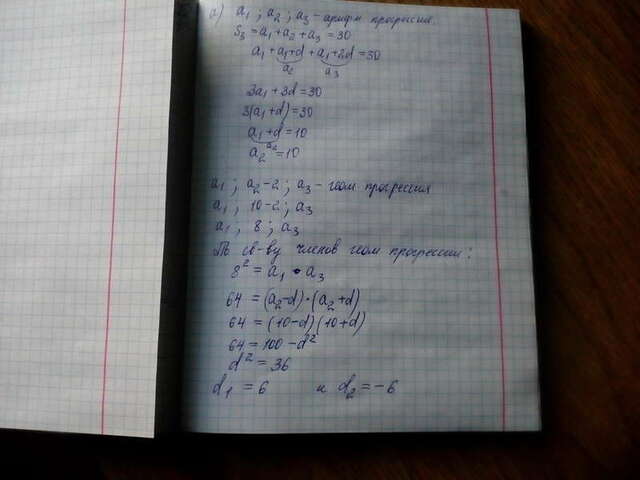 а) a₁ ; a₂ ; a₃ - арифм прогрессия
S₃ = a₁ + a₂ + a₃ = 30
a₁ + a₁+d + a₁+2d = 30
a₂ a₃
3a₁ + 3d = 30
3(a₁+d) = 30
a₁+d = 10
a₂
a₂ = 10
a₁ ; a₂-2 ; a₃ - геом прогрессия
a₁ ; 10-2 ; a₃
a₁ ; 8 ; a₃
По св-ву членов геом прогрессии:
8² = a₁ • a₃
64 = (a₂-d)·(a₂+d)
64 = (10-d)(10+d)
64 = 100 - d²
d² = 36
d₁ = 6 и d₂ = -6